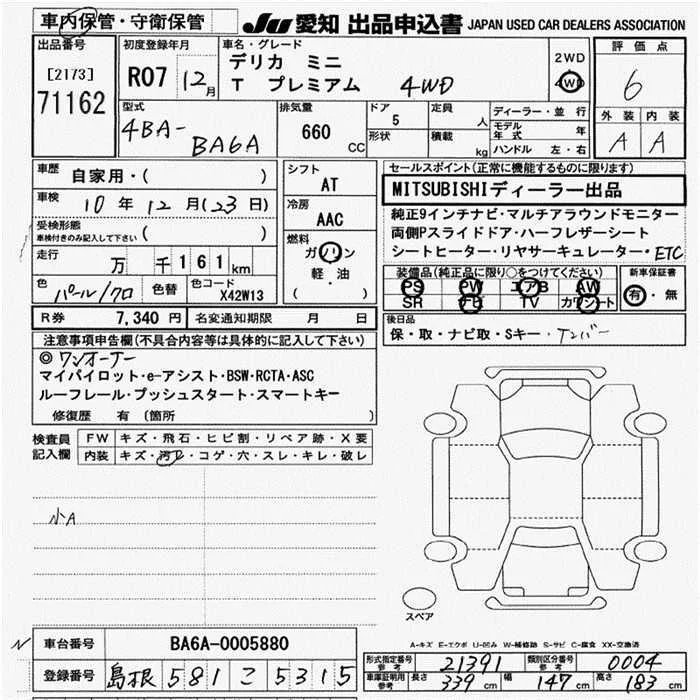 車内保管・守衛保管
JU 愛知 出品申込書 JAPAN USED CAR DEALERS ASSOCIATION
出品番号
[2173]
71162
初度登録年月
R07 12月
車名・グレード
デリカ ミニ
T プレミアム 4WD
2WD
4WD
評価点
6
外装 内装
A A
型式
4BA-BA6A
排気量
660 CC
ドア
5
形状
定員 人
積載 kg
ディーラー・並行
モデル年式 年
ハンドル 左・右
車歴
自家用・( )
車検
10年12月(23日)
受検形態
車検付きのみ記入して下さい ( )
走行
万 千161km
色
パール/クロ
色替
色コード
X42W13
シフト
AT
冷房
AAC
燃料
ガソリン
軽・油
( )
セールスポイント(正常に機能するものに限ります)
MITSUBISHIディーラー出品
純正9インチナビ・マルチアラウンドモニター
両側Pスライドドア・ハーフレザーシート
シートヒーター・リヤサーキュレーター・ETC
装備品(純正品に限り○をつけてください)
PS PW エアB AW
SR TV カワシート
新車保証書
有・無
R券 7,340円
名変通知期限 月 日
後日品
保・取・ナビ取・Sキー・ナンバー
注意事項申告欄(不具合内容等は具体的に記入して下さい)
◎ワンオーナー
マイパイロット・e-アシスト・BSW・RCTA・ASC
ルーフレール・プッシュスタート・スマートキー
修復歴 有 (箇所 )
検査員記入欄
FW キズ・飛石・ヒビ割・リペア跡・X要
内装 キズ・汚レ・コゲ・穴・スレ・キレ・破レ
小A
スペア
A-キズ E-エクボ U-凹み W-補修跡 S-サビ C-腐食 XX-交換済
車台番号 BA6A-0005880
登録番号 島根 581 こ 5315
形式指定番号 参考 21391
類別区分番号 参考 0004
車庫証明用 参考
長さ 339 cm 幅 147 cm 高さ 183 cm